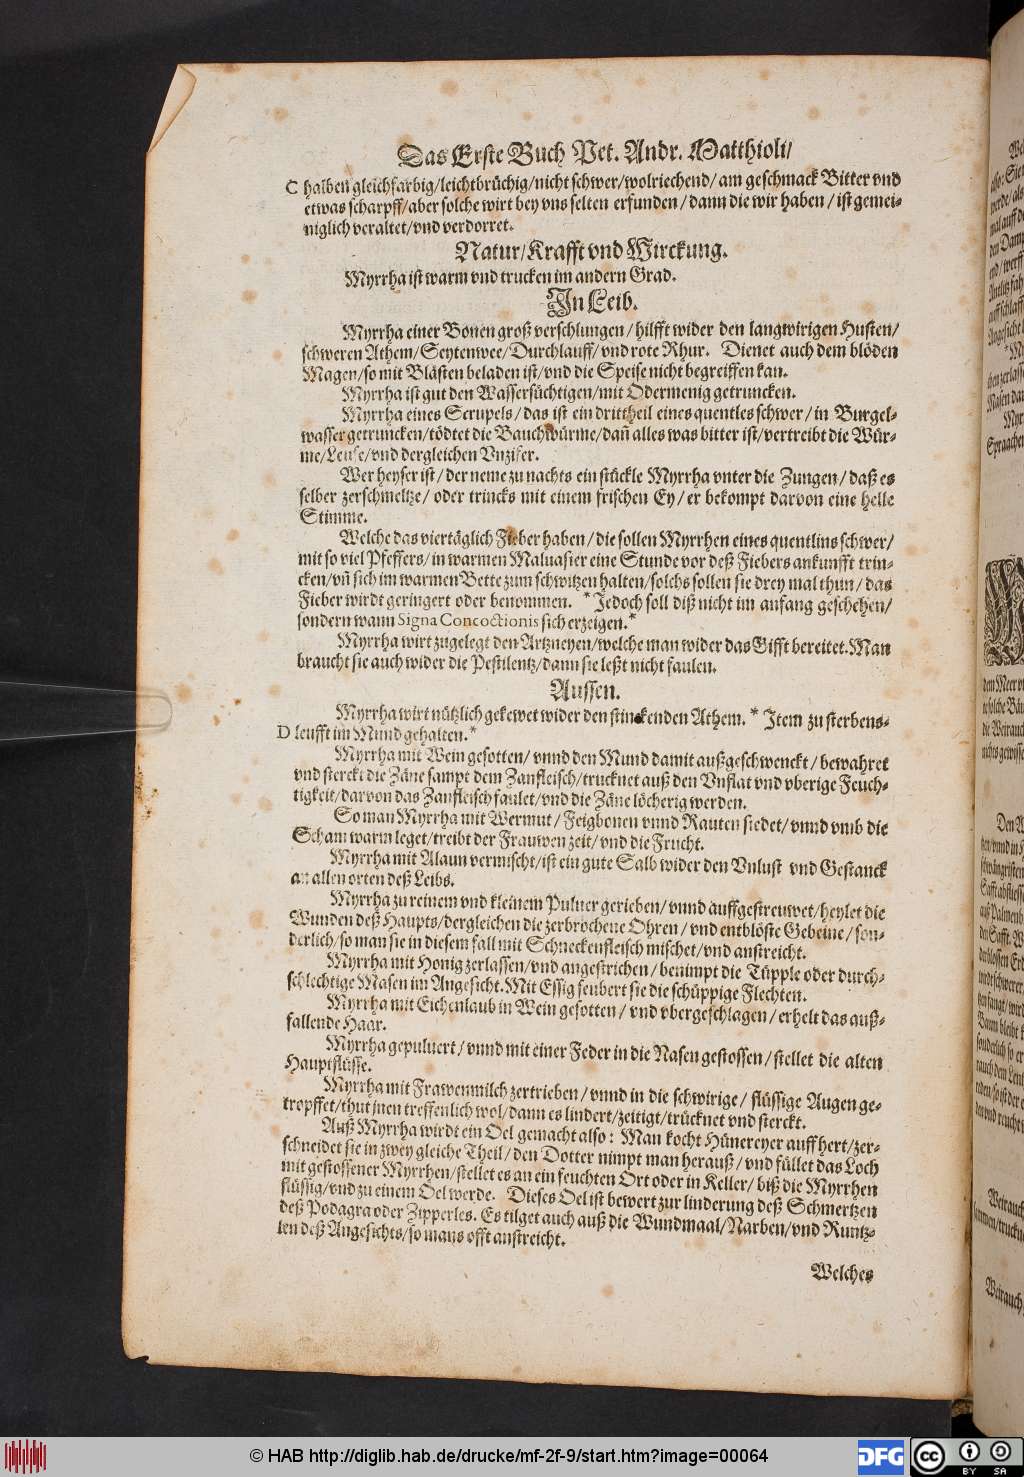 Das Erste Buch Pet. Andr. Matthioli/
C halben gleichfarbig/leichtbrüchig/nicht schwer/wolriechend/ am geschmack Bitter vnd
etwas scharpff/aber solche wirt bey vns selten erfunden/ dann die wir haben/ ist gemei-
niglich veraltet/vnd verdorret.
Natur/Krafft vnd Wirckung.
Myrrha ist warm vnd trucken im andern Grad.
In Leib.
Myrrha einer Bonen groß verschlungen/ hilfft wider den langwirigen Husten/
schweren Athem/Seytenwee/Durchlauff/ vnd rote Rhur. Dienet auch dem blöden
Magen/so mit Blästen beladen ist/vnd die Speise nicht begreiffen kan.
Myrrha ist gut den Wassersüchtigen/mit Odermenig getruncken.
Myrrha eines Scrupels/ das ist ein drittheil eines quentles schwer/ in Burgel-
wasser getruncken/tödtet die Bauchwürme/dañ alles was bitter ist/vertreibt die Wür-
me/Leuse/vnd dergleichen Vnzifer.
Wer heyser ist/ der neme zu nachts ein stückle Myrrha vnter die Zungen/ daß es
selber zerschmeltze/ oder trincks mit einem frischen Ey/ er bekompt darvon eine helle
Stimme.
Welche das viertäglich Fieber haben/ die sollen Myrrhen eines quentlins schwer/
mit so viel Pfeffers/ in warmen Maluasier eine Stunde vor deß Fiebers ankunfft trin-
cken/vñ sich im warmen Bette zum schwitzen halten/solchs sollen sie drey mal thun/ das
Fieber wirdt geringert oder benommen. * Jedoch soll diß nicht im anfang geschehen/
sondern wann Signa Concoctionis sich erzeigen.*
Myrrha wirt zugelegt den Artzneyen/welche man wider das Gifft bereitet. Man
braucht sie auch wider die Pestilentz/dann sie leßt nicht faulen.
Aussen.
Myrrha wirt nützlich gekewet wider den stinckenden Athem. * Item zu sterbens-
D leufft im Mund gehalten.*
Myrrha mit Wein gesotten/ vnnd den Mund damit außgeschwenckt/ bewahret
vnd sterckt die Zäne sampt dem Zanfleisch/trucknet auß den Vnflat vnd vberige Feuch-
tigkeit/darvon das Zanfleisch faulet/vnd die Zäne löcherig werden.
So man Myrrha mit Wermut/ Feigbonen vnnd Rauten siedet/ vnnd vmb die
Scham warm leget/treibt der Frauwen zeit/ vnd die Frucht.
Myrrha mit Alaun vermischt/ist ein gute Salb wider den Vnlust vnd Gestanck
an allen orten deß Leibs.
Myrrha zu reinem vnd kleinem Puluer gerieben/ vnnd auffgestreuwet/heylet die
Wunden deß Haupts/dergleichen die zerbrochene Ohren/ vnd entblöste Gebeine/ son-
derlich/so man sie in diesem fall mit Schneckenfleisch mischet/vnd anstreicht.
Myrrha mit Honig zerlassen/vnd angestrichen/ benimpt die Tüpple oder durch-
schlechtige Masen im Angesicht. Mit Essig seubert sie die schüppige Flechten.
Myrrha mit Eichenlaub in Wein gesotten/ vnd vbergeschlagen/ erhelt das auß-
fallende Haar.
Myrrha gepuluert/ vnnd mit einer Feder in die Nasen gestossen/ stellet die alten
Hauptflüsse.
Myrrha mit Frawenmilch zertrieben/ vnnd in die schwirige/ flüssige Augen ge-
tropffet/thut jnen treffenlich wol/dann es lindert/zeitigt/trücknet vnd sterckt.
Auß Myrrha wirdt ein Oel gemacht also: Man kocht Hünereyer auff hert/zer-
schneidet sie in zwey gleiche Theil/ den Dotter nimpt man herauß/ vnd füllet das Loch
mit gestossener Myrrhen/stellet es an ein feuchten Ort oder in Keller/ biß die Myrrhen
flüssig/vnd zu einem Oel werde. Dieses Oel ist bewert zur linderung deß Schmertzen
deß Podagra oder Zipperles. Es tilget auch auß die Wundmaal/Narben/vnd Runtz-
len deß Angesichts/so mans offt anstreicht.
Welches
© HAB http://diglib.hab.de/drucke/mf-2f-9/start.htm?image=00064
DFG
cc
BY SA